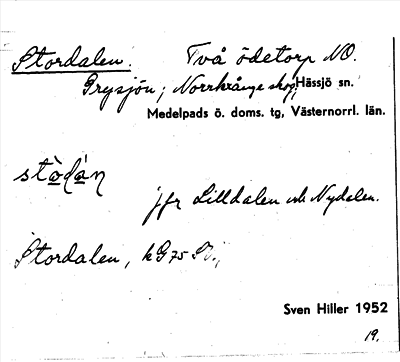 Stordalen. Två ödetorp NO.
Grysjön; Norrkrånge skog; Hässjö sn.
Medelpads ö. doms. tg, Västernorrl. län.
stòdán
jfr Lilldalen och Nydalen.
Stordalen, kG75
Sven Hiller 1952
19.